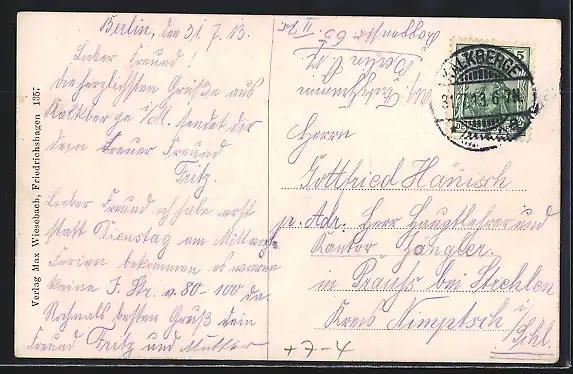 Berlin, den 31. 7. 13.
Lieber Freund!
die herzlichsten Grüße aus
Kalkberge i/M. sendet dir
dein treuer Freund
Fritz.
Lieber Freund ich habe erst
statt Dienstag am Mittwoch
Ferien bekommen es waren
keine 80-100 da.
Nochmals besten Gruß dein
Freund Fritz und Mutter
Verlag Max Wiesebach, Friedrichshagen 1357
Berlin
KALKBERGE
5
Herrn
Gottfried Hänisch
p. Adr. Herr Hauptlehrer und
Kantor
in Prauß bei Strehlen
Kreis Nimptsch i/Schl.